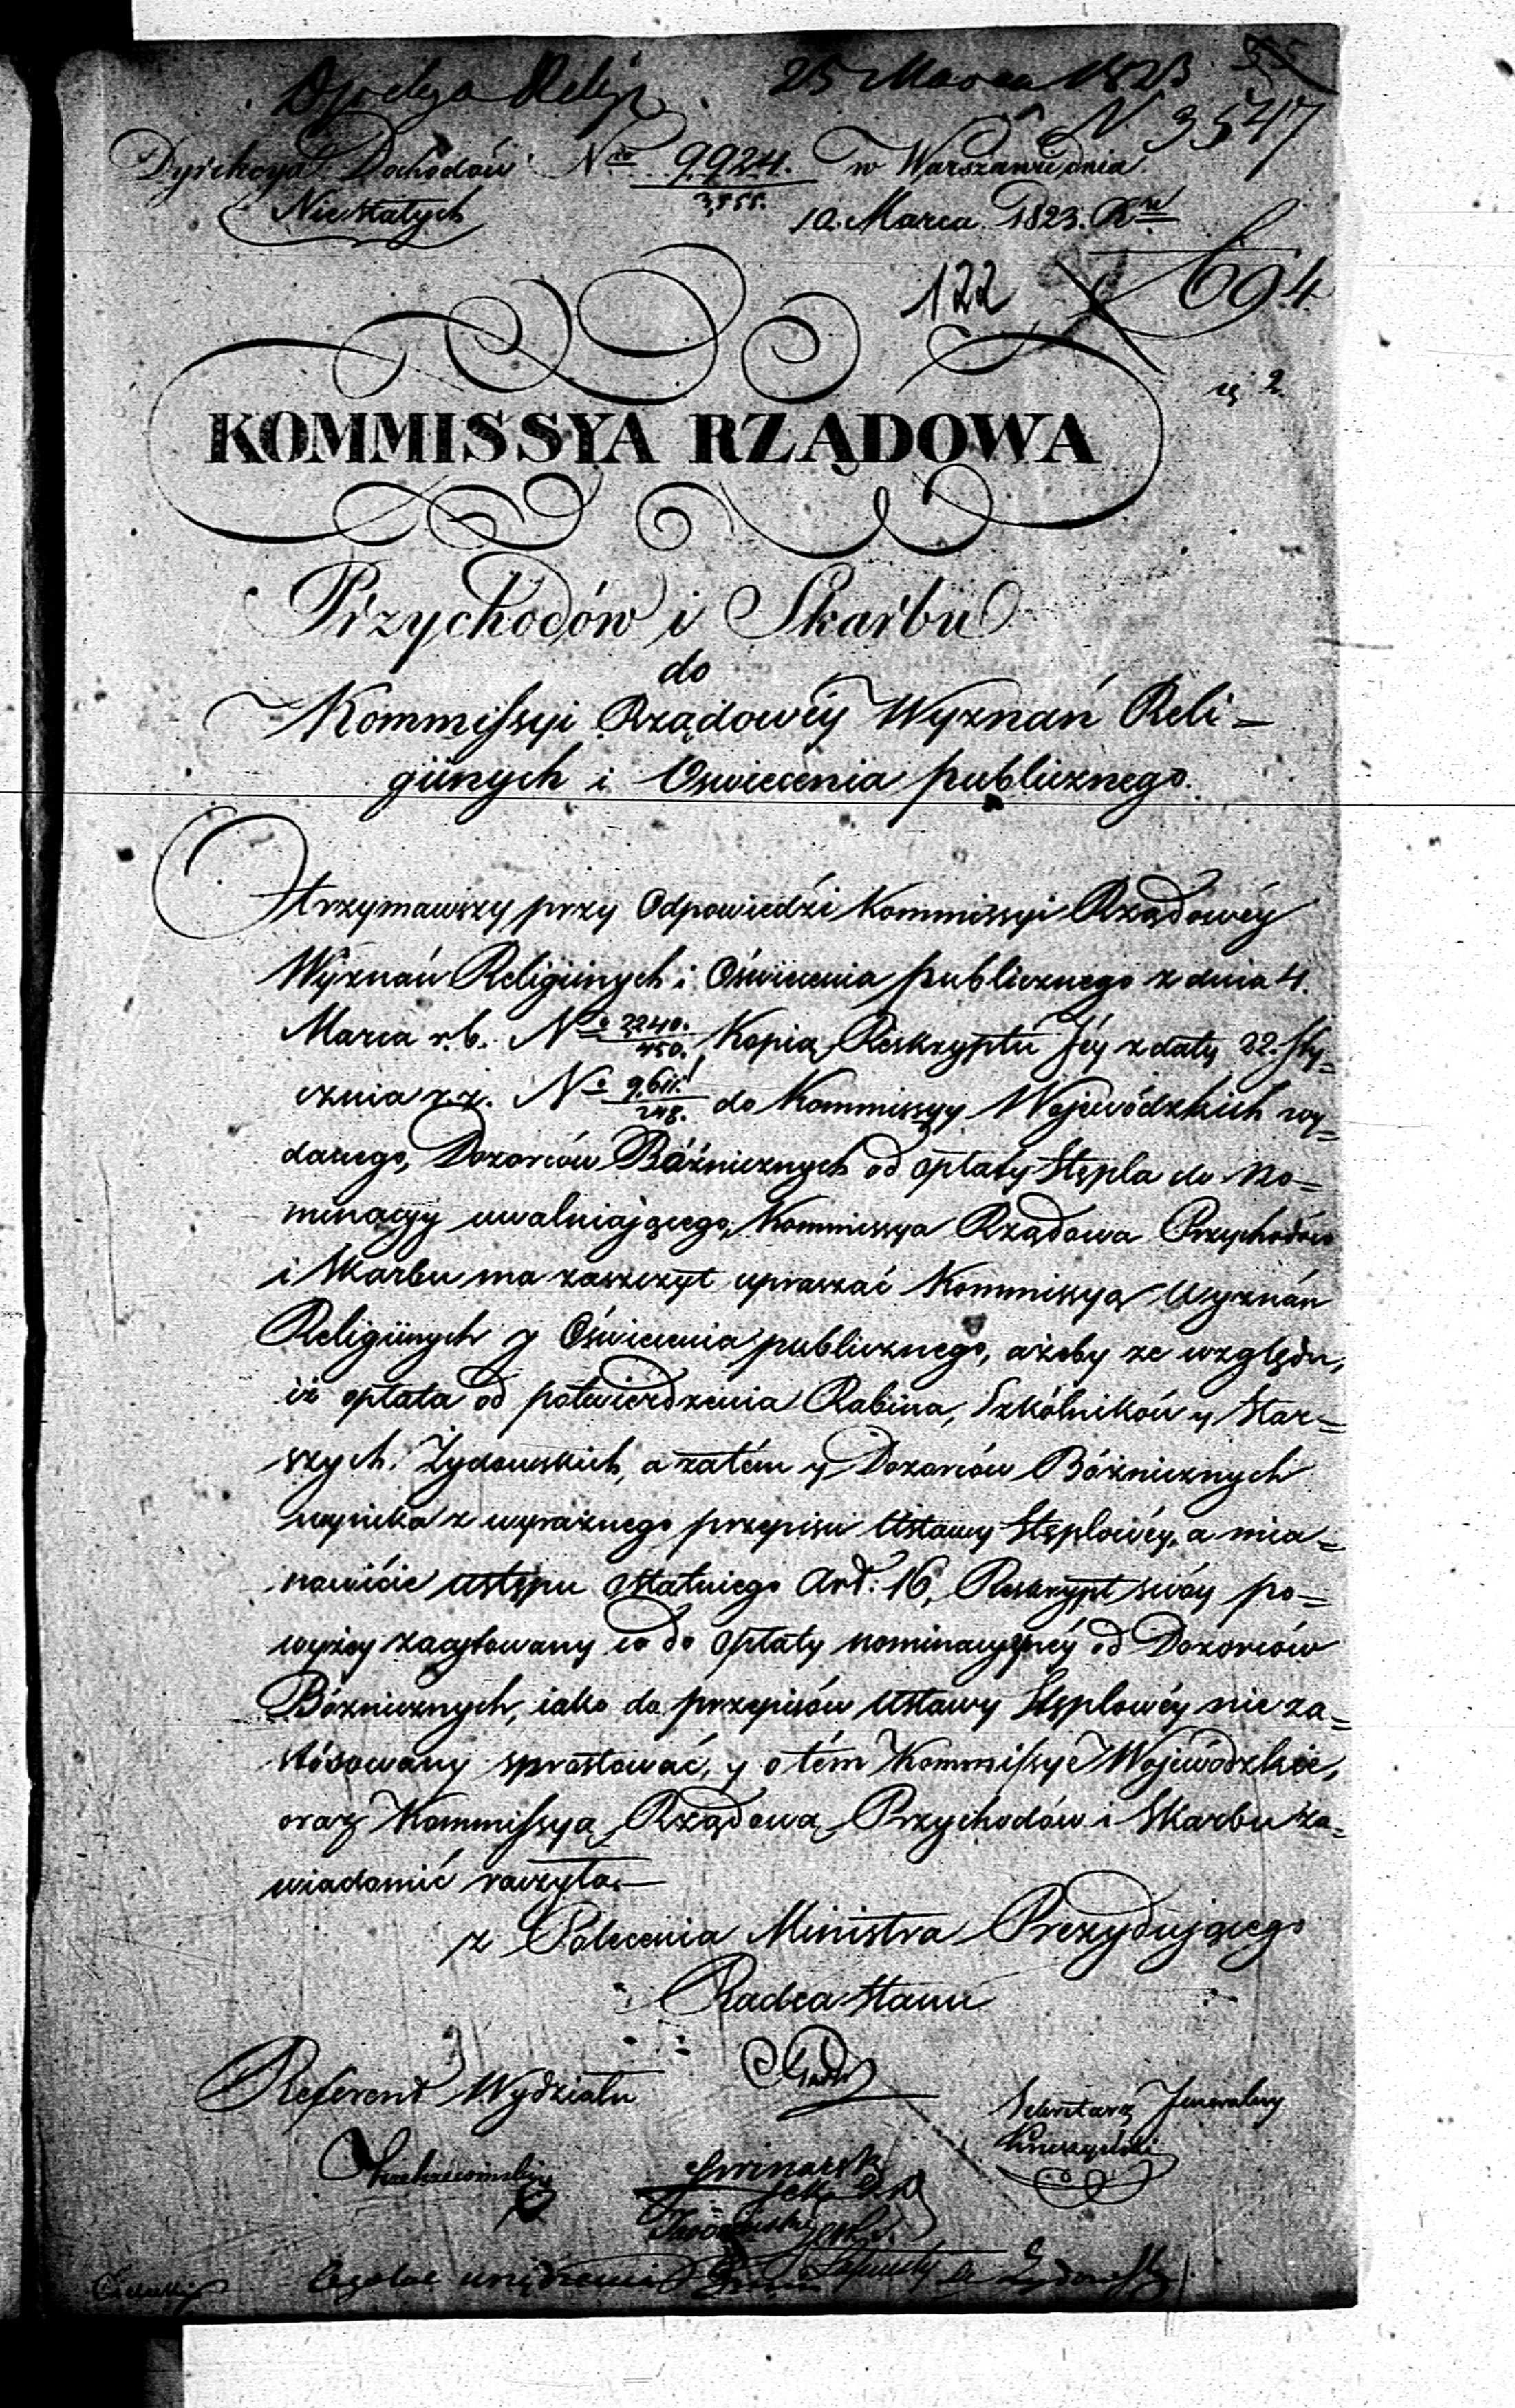 25 Marca 1823
N 3547
Dyrekcya Dochodów Nro 9924. w Warszawie dnia
3,555.
Niestałych 10. Marca 1823. Rku
122 694
KOMMISSYA RZĄDOWA
Przychodów i Skarbu
do
Kommissyi Rządowéy Wyznań Reli=
giinych i Oswiecenia publicznego.
Otrzymawszy przy Odpowiedźi Kommissyi Rządowéy
Wyznań Religiinych i Oświecenia publicznego z dnia 4.
Marca r. b. No 2240./450. Kopią Reskryptu Jéy z daty 22. Sty=
cznia r. z. No do Kommissyy Wojewódzkich wy=
danego, Dozorców Bóźnicznych od opłaty Stępla do No=
minacyy uwalniaiącego, Kommissya Rządowa Przychodów
i Skarbu ma zaszczyt upraszać Kommissyą Wyznań
Religiinych y Oświecenia publicznego, ażeby ze względu,
iż opłata od potwierdzenia Rabina, Szkólników y Star=
szych Żydowskich, a zatém y Dozorców Bóżnicznych
wynika z wyraźnego przepisu Ustawy Stęplowéy, a mia=
nowićie ustępu ostatniego Art: 16, Reskrypt swóy po=
wyżey zacytowany co do opłaty nominacyynéy od Dozorców
Bóżnicznych, iako do przepisów Ustawy Stęplowéy nie za=
stósowany sprostować, y o tém Kommissye Wojewódzkie,
oraz Kommissyą Rządową Przychodów i Skarbu za=
wiadomić raczyła.
z Polecenia Ministra Prezyduiącego
Radca Stanu
Referent Wydziału
Sekretarz Jeneralny